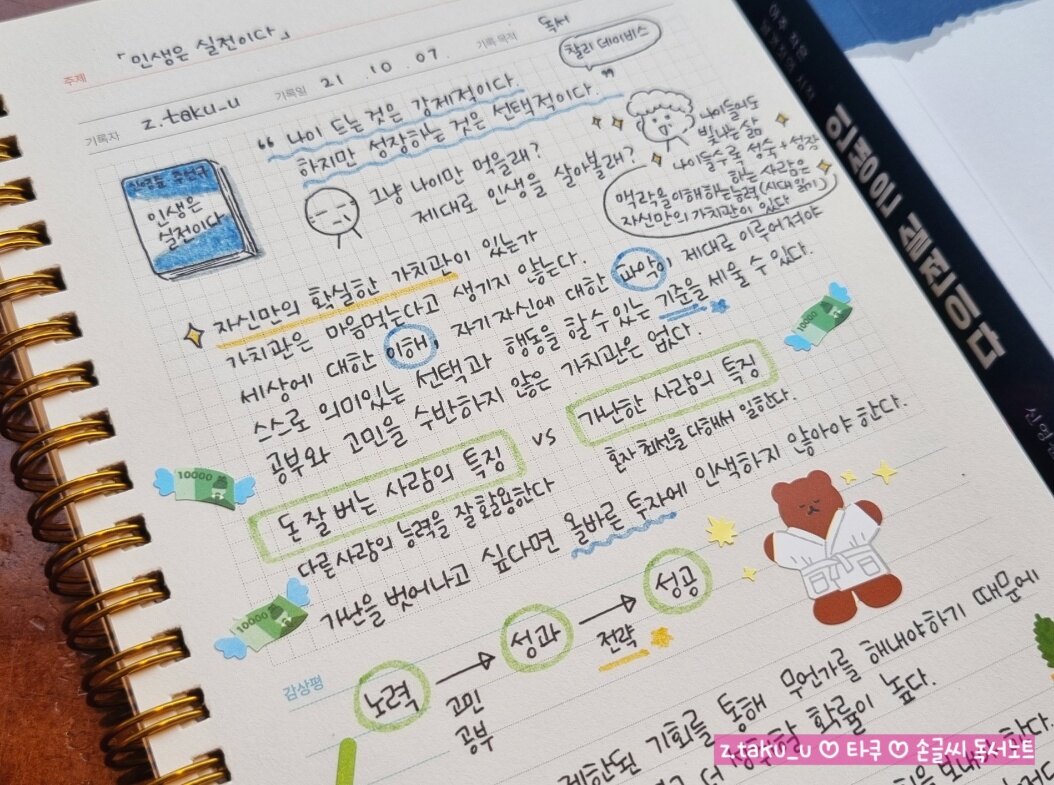 주제
「인생은 실전이다」
기록자
z.taku_u
기록일
21 . 10 . 07.
기록 목적
독서
찰리 데이비스
“ 나이 드는 것은 강제적이다.
하지만 성장하는 것은 선택적이다. ”
인생은
실전이다
그냥 나이만 먹을래?
제대로 인생을 살아볼래?
나이들어도
빛나는 삶
나이들수록 성숙+성장
하는 사람은
맥락을 이해하는 능력(시대 읽기)
자신만의 가치관이 있다
자신만의 확실한 가치관이 있는가
가치관은 마음먹는다고 생기지 않는다.
세상에 대한 이해, 자기 자신에 대한 파악이 제대로 이루어져야
스스로 의미있는 선택과 행동을 할 수 있는 기준을 세울 수 있다.
공부와 고민을 수반하지 않은 가치관은 없다.
돈 잘 버는 사람의 특징 vs 가난한 사람의 특징
다른사람의 능력을 잘 활용한다
혼자 최선을 다해서 일한다.
가난을 벗어나고 싶다면 올바른 투자에 인색하지 않아야 한다.
10000
10000
10000
감상평
노력
고민
공부
성과
전략
성공
제한된 기회를 통해 무언가를 해내야하기 때문에
더 성공할 확률이 높다.
인생은 실전이다
z.taku_u ♡ 타쿠 ♡ 손글씨 독서노트